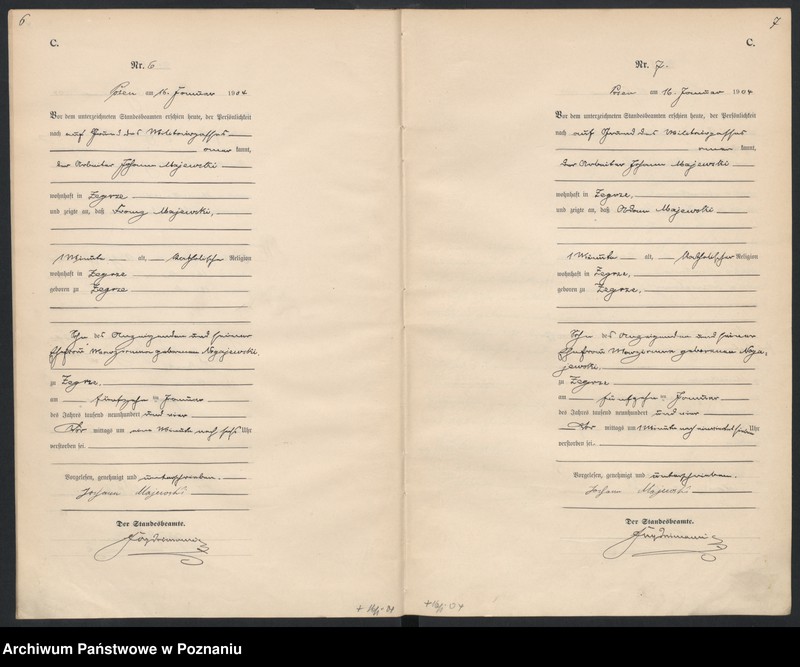 6
C.
Nr. 6
Posen am 16. Januar 1904
Vor dem unterzeichneten Standesbeamten erschien heute, der Persönlichkeit
nach auf Grund des Militärpasses
kannt,
der Arbeiter Johann Majewski
wohnhaft in Zegrze
und zeigte an, daß Franz Majewski,
1 Minute alt, katholischer Religion
wohnhaft in Zegrze
geboren zu Zegrze
Sohn des Anzeigenden und seiner
Ehefrau Marianna geborenen Nogajewski
zu Zegrze,
am fünfzehnten Januar
des Jahres tausend neunhundert und vier
Vormittags um eine Minute nach Uhr
verstorben sei.
Vorgelesen, genehmigt und unterschrieben.
Johann Majewski
Der Standesbeamte.
7
C.
Nr. 7.
Posen am 16. Januar 1904
Vor dem unterzeichneten Standesbeamten erschien heute, der Persönlichkeit
nach auf Grund des Militärpasses
kannt,
der Arbeiter Johann Majewski
wohnhaft in Zegrze,
und zeigte an, daß Adam Majewski
1 Minute alt, katholischer Religion
wohnhaft in Zegrze,
geboren zu Zegrze,
Sohn des Anzeigenden und seiner
Ehefrau Marianna geborenen Noga,
jewski.
zu Zegrze
am fünfzehnten Januar
des Jahres tausend neunhundert und vier
Vormittags um 1 Minute nach Uhr
verstorben sei.
Vorgelesen, genehmigt und unterschrieben.
Johann Majewski
Der Standesbeamte.
Archiwum Państwowe w Poznaniu